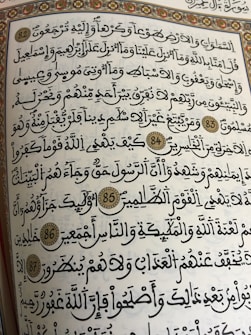 سورة آل عمران
السَّمَٰوَٰتِ وَالَارْضِ طَوْعاً وَكَرْهاً وَإِلَيْهِ تُرْجَعُونَ 82
قُلَ اٰمَنَّا بِاللَّهِ وَمَا أُنزِلَ عَلَيْنَا وَمَا أُنزِلَ عَلَىٰ إِبْرَٰهِيمَ وَإِسْمَٰعِيلَ
وَإِسْحَٰقَ وَيَعْقُوبَ وَالَاسْبَاطِ وَمَا أُوتِيَ مُوسَىٰ وَعِيسَىٰ
وَالنَّبِيٓـُٔونَ مِن رَّبِّهِمْ لَا نُفَرِّقُ بَيْنَ أَحَدٍ مِّنْهُمْ وَنَحْنُ لَهُۥ
مُسْلِمُونَ 83 وَمَنْ يَّبْتَغِ غَيْرَ الِاسْلَٰمِ دِيناً فَلَنْ يُّقْبَلَ مِنْهُ وَهُوَ
فِي الَاخِرَةِ مِنَ الْخَٰسِرِينَ 84 كَيْفَ يَهْدِي اللَّهُ قَوْماً كَفَرُوا
بَعْدَ إِيمَٰنِهِمْ وَشَهِدُوا أَنَّ الرَّسُولَ حَقٌّ وَجَاءَهُمُ الْبَيِّنَٰتُ
يَهْدِي الْقَوْمَ الظَّٰلِمِينَ 85 أُوْلَٰئِكَ جَزَاؤُهُمُ أَنَّ
هِمْ لَعْنَةَ اللَّهِ وَالْمَلَٰئِكَةِ وَالنَّاسِ أَجْمَعِينَ 86 خَٰلِدِينَ
لَا يُخَفَّفُ عَنْهُمُ الْعَذَابُ وَلَا هُمْ يُنظَرُونَ 87
مِنۢ بَعْدِ ذَٰلِكَ وَأَصْلَحُوا فَإِنَّ اللَّهَ غَفُورٌ رَّحِيمٌ